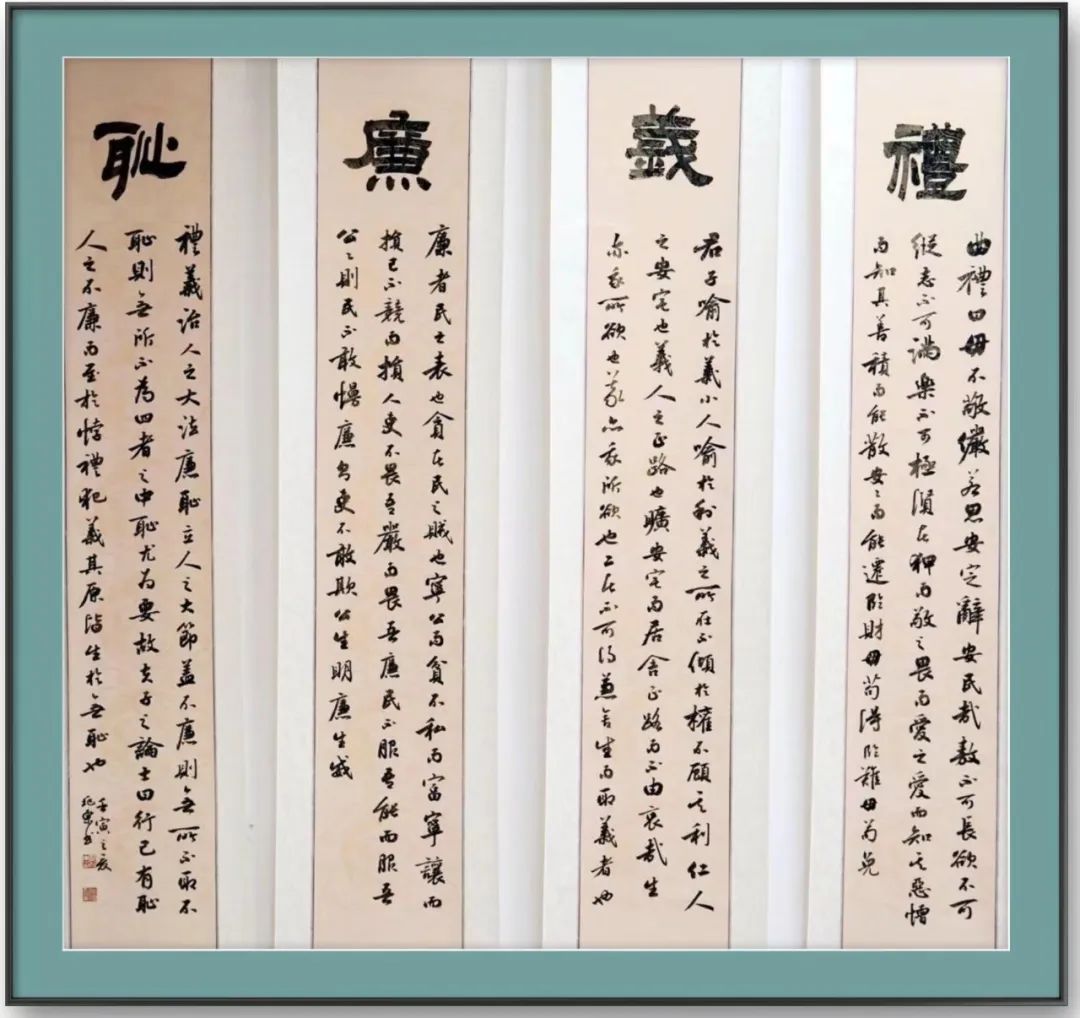 禮
曲禮曰毋不敬儼若思安定辭安民哉敖不可長欲不可
縱志不可滿樂不可極賢者狎而敬之畏而愛之愛而知其惡憎
而知其善積而能散安安而能遷臨財毋苟得臨難毋苟免
義
君子喻於義小人喻於利義之所在不傾於權不顧其利仁人
之安宅也義人之正路也曠安宅而居舍正路而不由哀哉生
亦我所欲也義亦我所欲也二者不可得兼舍生而取義者也
廉
廉者民之表也貪者民之賊也寧公而貧不私而富寧讓而
損己不競而損人吏不畏吾嚴而畏吾廉民不服吾能而服吾
公公則民不敢慢廉則吏不敢欺公生明廉生威
恥
禮義治人之大法廉恥立人之大節蓋不廉則無所不取不
恥則無所不為四者之中恥尤為要故夫子之論士曰行己有恥
人之不廉而至於悖禮犯義其原皆生於無恥也
壬寅之夏